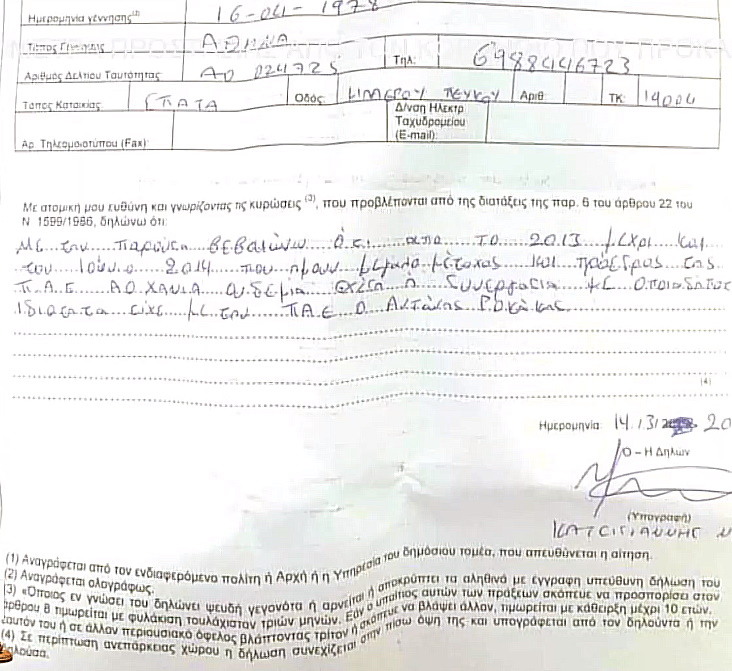 Ημερομηνία γέννησης(2) 16-04-1978
Τόπος Γέννησης ΑΘΗΝΑ
Αριθμός Δελτίου Ταυτότητας: ΑΟ 024725 Τηλ: 6988446723
Τόπος Κατοικίας ΣΠΑΤΑ Οδός ΗΜΕΡΟΥ ΠΕΥΚΟΥ Αριθ ΤΚ: 19004
Αρ. Τηλεομοιοτύπου (Fax): Δ/νση Ηλεκτρ
Ταχυδρομείου
(E-mail):
Με ατομική μου ευθύνη και γνωρίζοντας τις κυρώσεις (3), που προβλέπονται από της διατάξεις της παρ. 6 του άρθρου 22 του
Ν 1599/1986, δηλώνω ότι:
Με την παρούσα βεβαιώνω ότι απο το 2013 μέχρι και
τον Ιούνιο 2014 που ημουν μεγαλομέτοχος και πρόεδρος της
Π.Α.Ε ΑΟ ΧΑΝΙΑ ουδεμία σχέση ή συνεργασία με οποιαδήποτε
Ιδιοτητα είχε με την ΠΑΕ ο Αντώνης Ροκάκης
(4)
Ημερομηνία: 14/3/ 20
Ο – Η Δηλών
(Υπογραφή)
ΚΑΤΣΙΓΙΑΝΝΗΣ Ν
(1) Αναγράφεται από τον ενδιαφερόμενο πολίτη ή Αρχή ή η Υπηρεσία του δημόσιου τομέα, που απευθύνεται η αίτηση.
(2) Αναγράφεται ολογράφως.
3) «Όποιος εν γνώσει του δηλώνει ψευδή γεγονότα ή αρνείται ή αποκρύπτει τα αληθινά με έγγραφη υπεύθυνη δήλωση του
άρθρου 8 τιμωρείται με φυλάκιση τουλάχιστον τριών μηνών. Εάν ο υπαίτιος αυτών των πράξεων σκόπευε να προσπορίσει στον
εαυτόν του ή σε άλλον περιουσιακό όφελος βλάπτοντας τρίτον ή σκόπευε να βλάψει άλλον, τιμωρείται με κάθειρξη μέχρι 10 ετών.
(4) Σε περίπτωση ανεπάρκειας χώρου η δήλωση συνεχίζεται στην πίσω όψη της και υπογράφεται από τον δηλούντα ή την
δηλούσα.